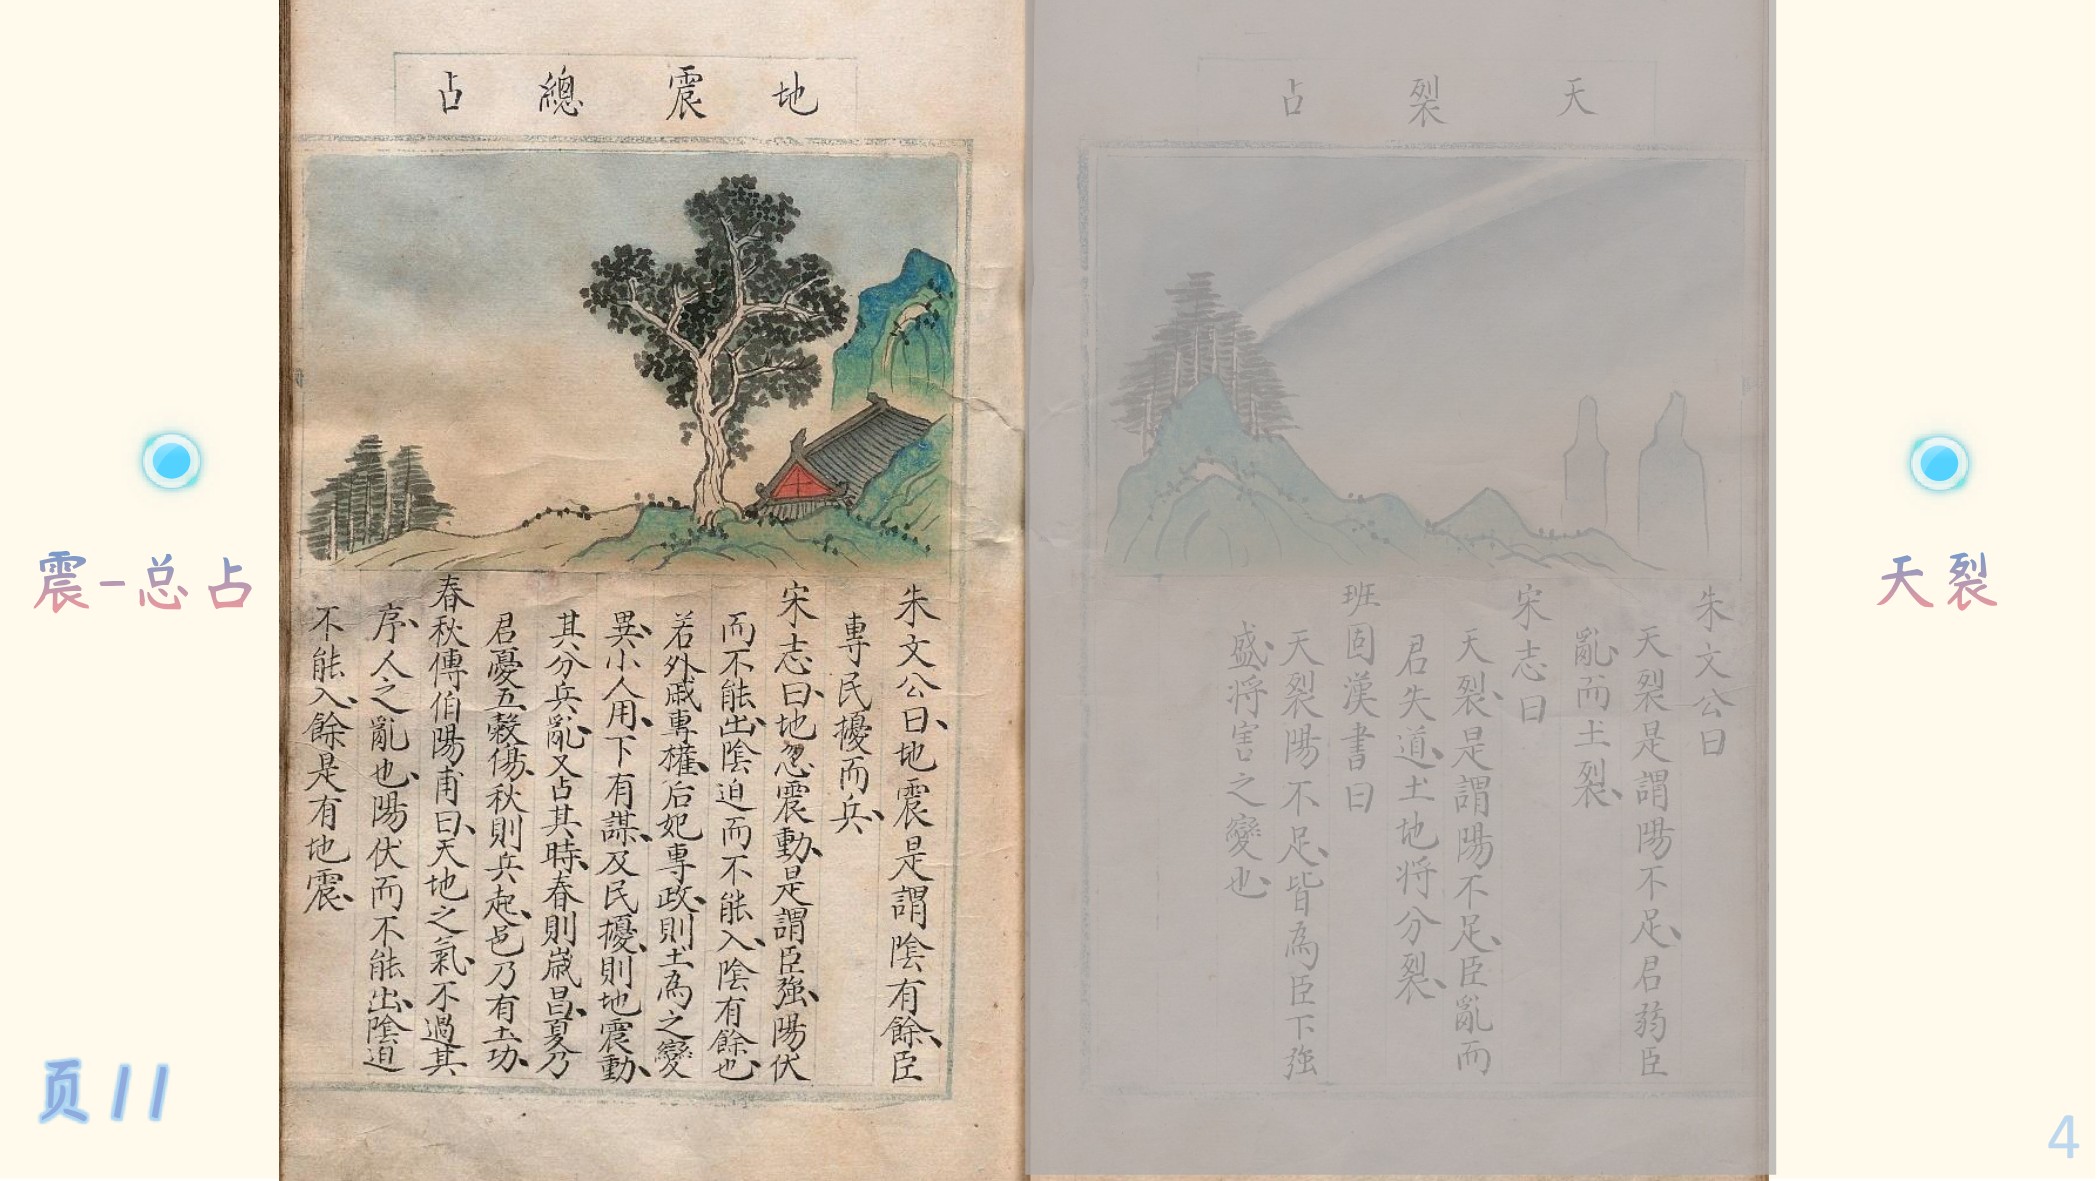 地震總占
朱文公曰地震是謂陰有餘臣
專民擾而兵
宋志曰地忽震動是謂臣強陽伏
而不能出陰迫而不能入陰有餘也
若外戚專權后妃專政則土為之變
異小人用下有謀及民擾則地震動
其分兵亂又占其時春則歲昌夏乃
君憂五穀傷秋則兵起邑乃有土功
春秋傳伯陽甫曰天地之氣不過其
序人之亂也陽伏而不能出陰迫
不能入餘是有地震
天裂占
朱文公曰
天裂是謂陽不足君弱臣
亂而土裂
宋志曰
天裂是謂陽不足臣亂而
君失道土地将分裂
班固漢書曰
天裂陽不足皆為臣下強
盛将害之變也
震-总占
天裂
页11
4